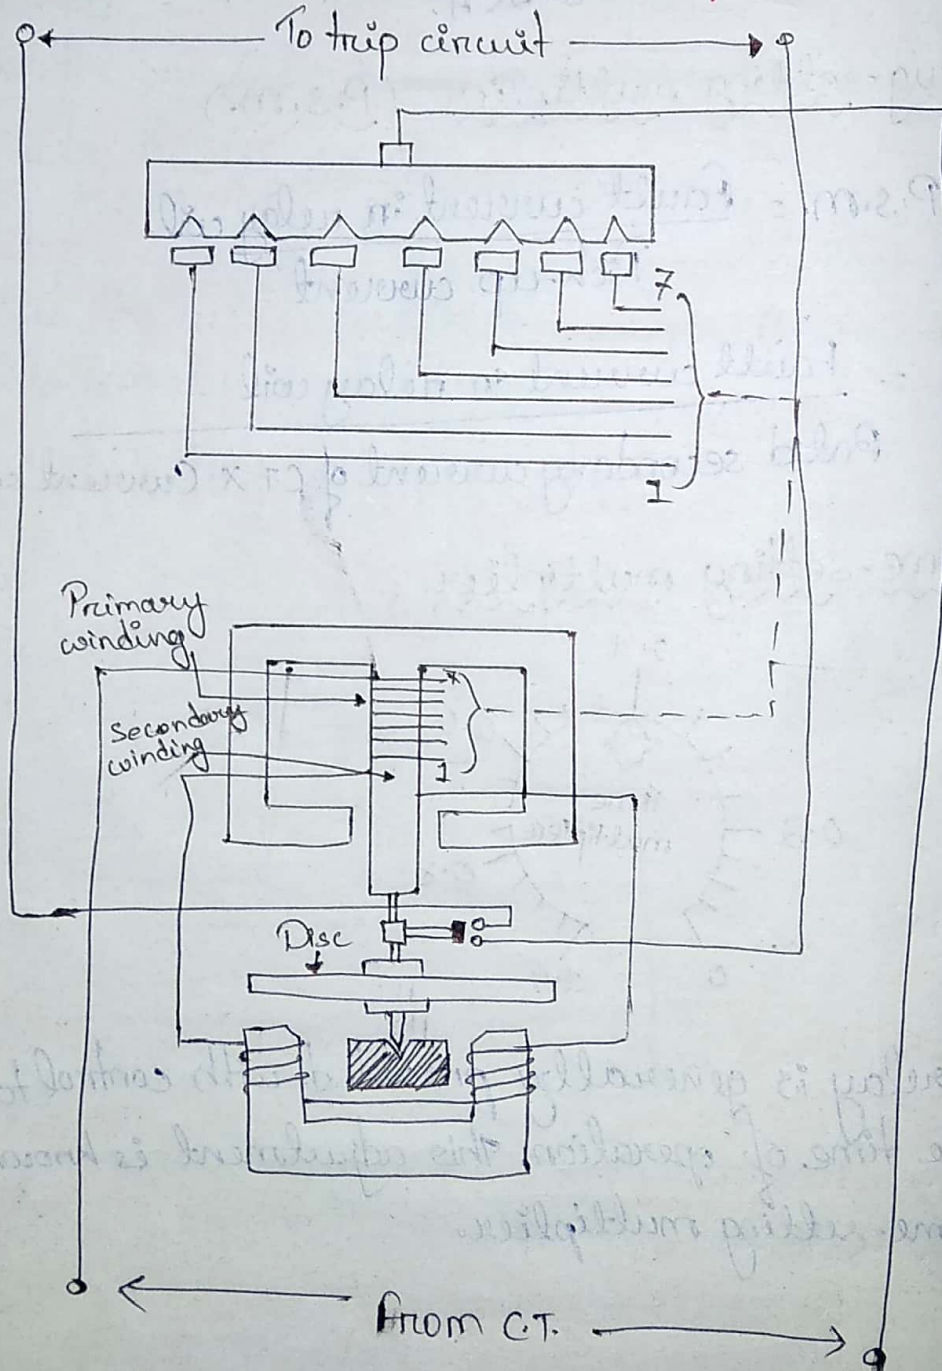 To trip circuit
7
1
Primary
winding
Secondary
winding
7
1
Disc
From C.T.